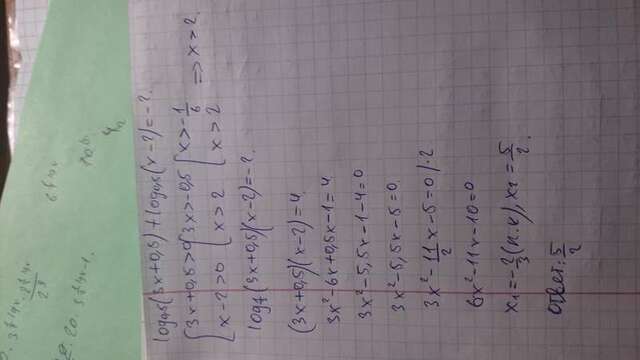 log₀,₅(3x+0,5)+log₀,₅(x-2)=-2.
{3x+0,5>0 {3x>-0,5 {x>-1/6
{x-2>0 {x>2 {x>2 => x>2.
(3x+0,5)(x-2)=-2.
(3x+0,5)(x-2)=4.
3x²-6x+0,5x-1=4
3x²-5,5x-1-4=0
3x²-5,5x-5=0.
3x²-11/2x-5=0/·2
6x²-11x-10=0
x₁=-2/3(п.к), x₂=5/2.
Ответ: 5/2